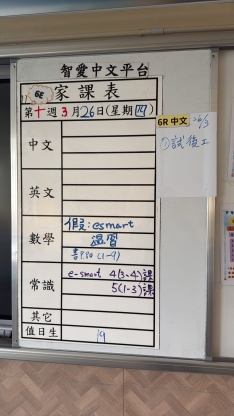 智愛中文平台
6E
家課表
第十週3月26日(星期四)
6R 中文 26/3
①試後工
中文
英文
數學
假:esmart
溫習
書P80 (1-9)
常識
e-smart 4(3,4)課
5(1-3)課
其它
值日生
19